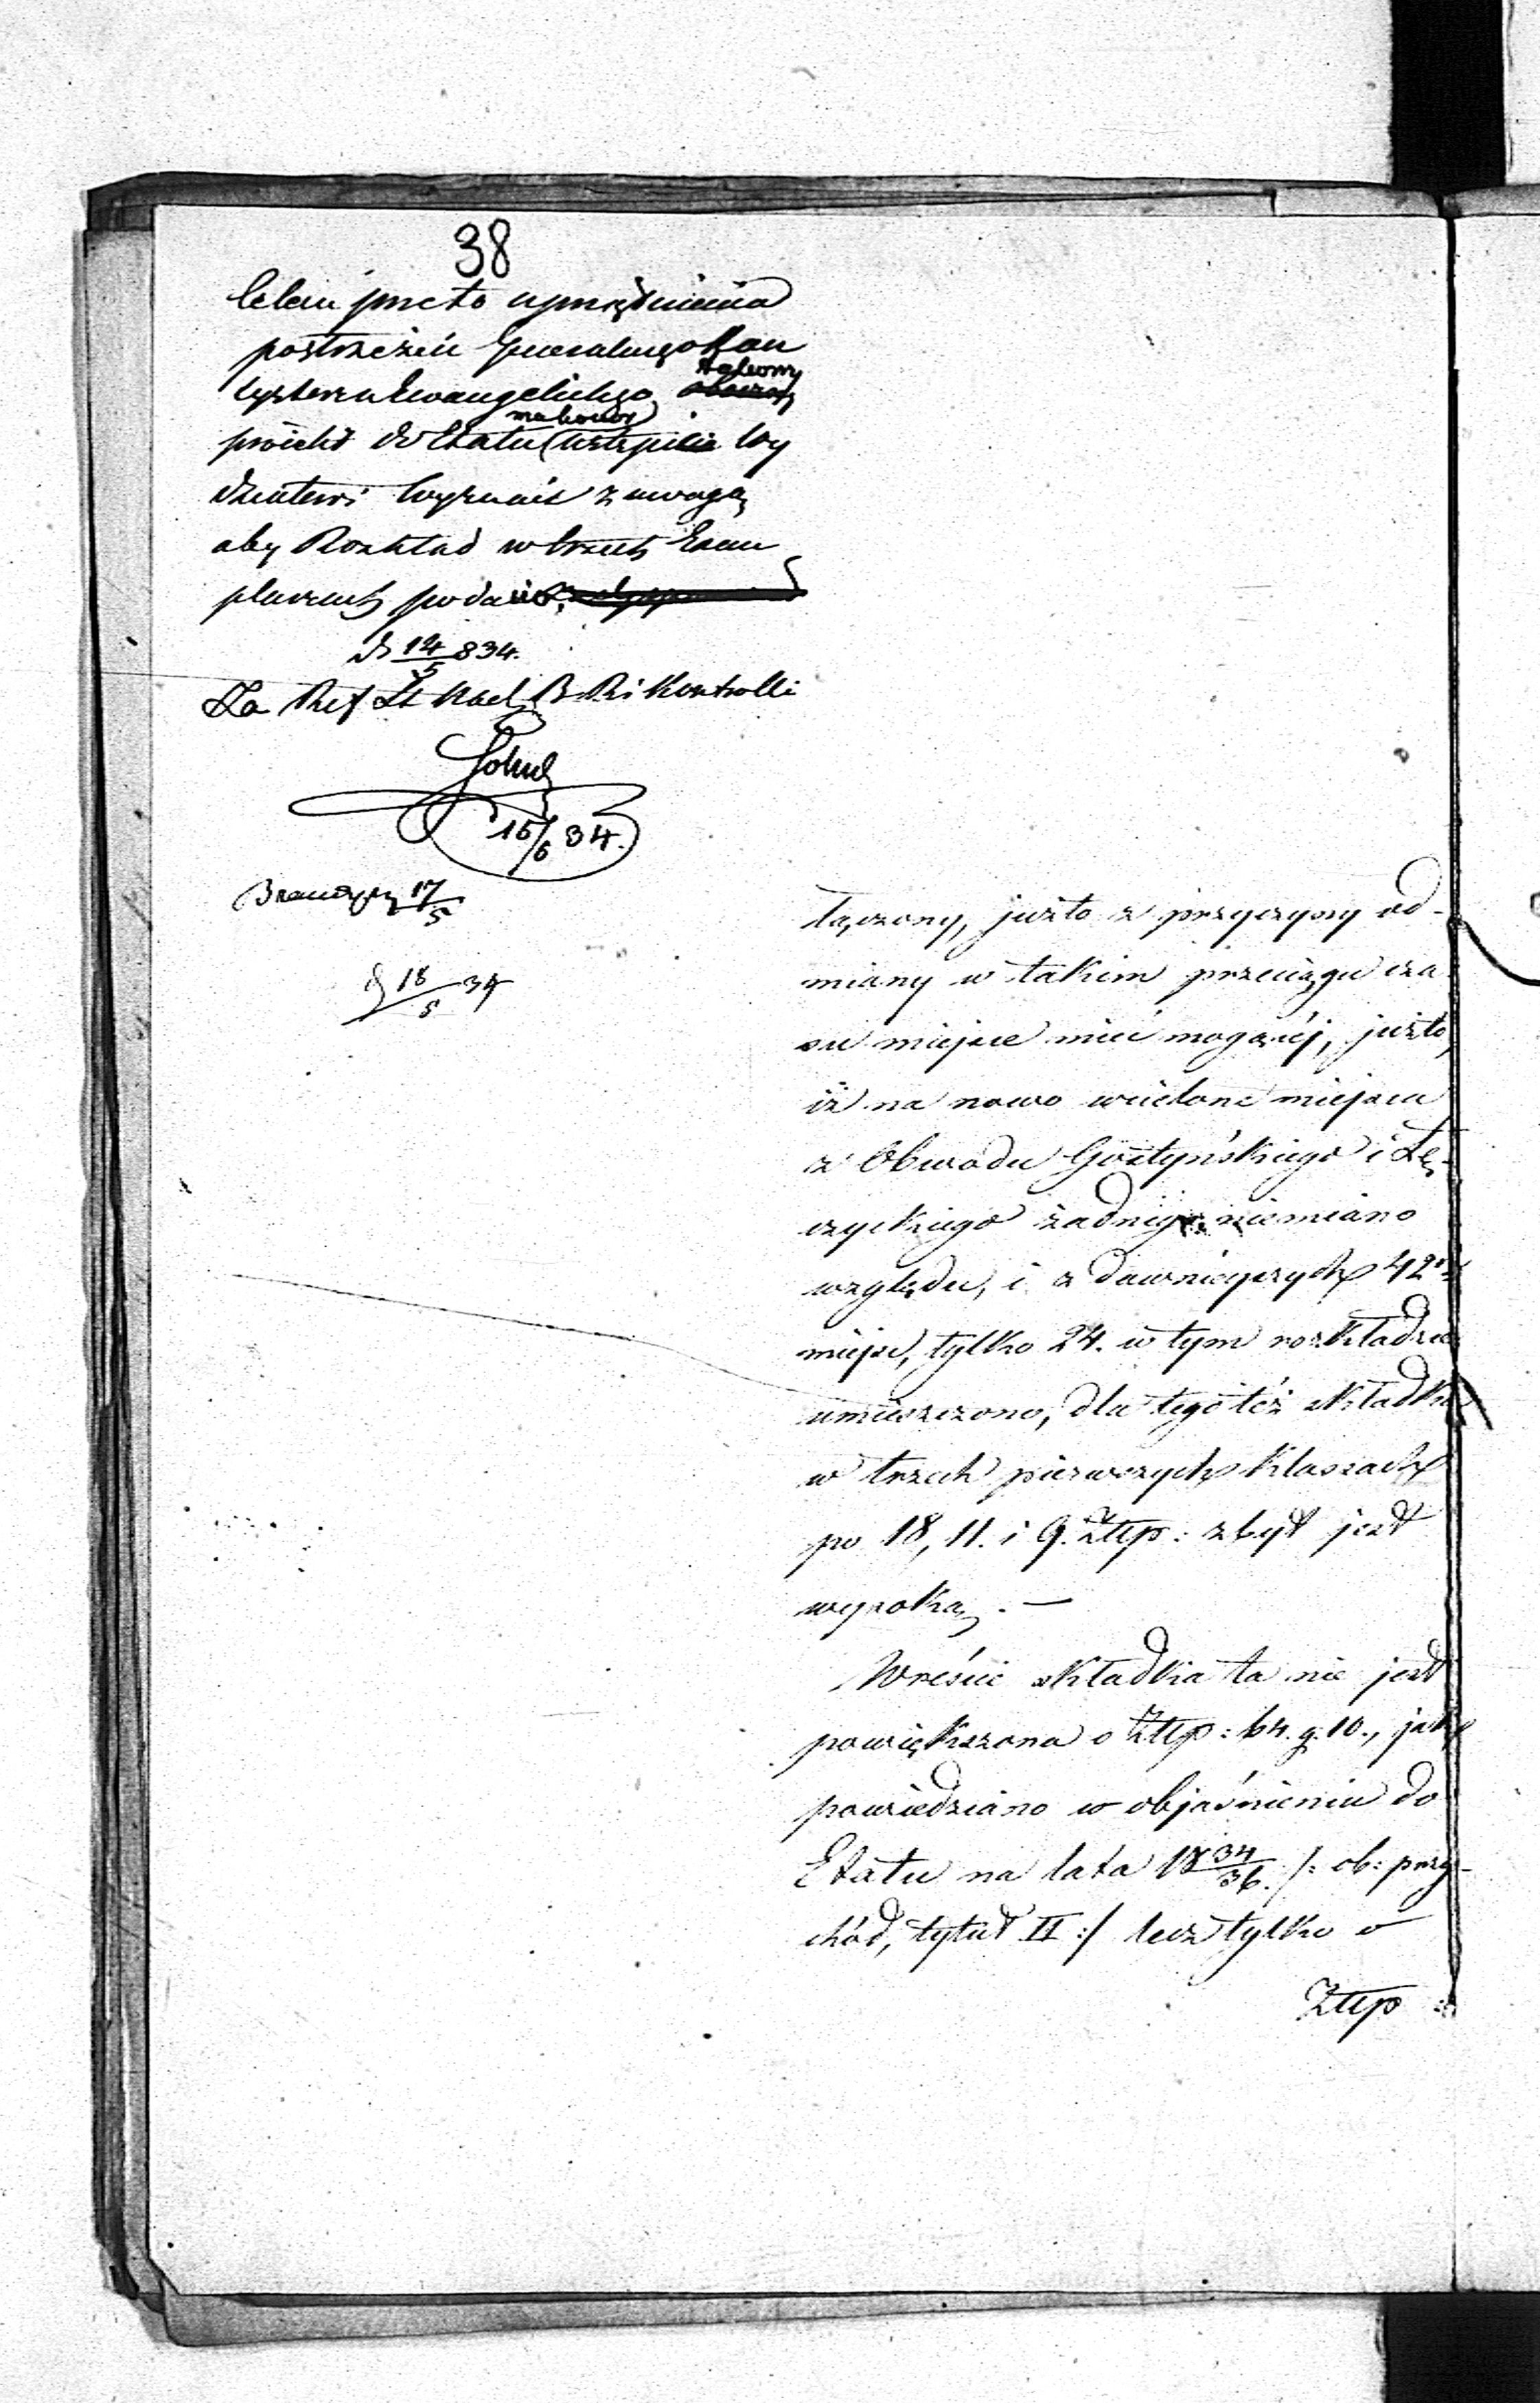 38
Celem przeto uprzątnienia
postrzeżeń Generalnego Kon
systorza Ewangelickiego
proiekt do Etatu na powrót Wy
działowi Wyznań z uwagą
aby Rozkład w trzech Exem
plarzach podano
d 14/5 834.
Za Ref St Nacz B Ri Kontrolli
15/5 34.
17/5
d 18/5 34
łączony, jużto z przyczyny od-
miany w takim przeciągu cza
su miejsce mieć mogącéj, jużto,
iż na nowo wcielone miejsca
z Obwodu Gostyńskiego i Łę-
czyckiego żadnego niemiano
względu, i z dawniejszych 42ch
miejsc, tylko 24. w tym rozkładzie
umieszczono, dla tego też składka
w trzech pierwszych klassach
po 18, 11. i 9. Złłp: zbyt jest
wysoką. —
Wreście składka ta nie jest
powiększona o Złłp: 64. g. 10., jak
powiedziano w objaśnieniu do
Etatu na lata 18 34/36. /: ob: przy-
chód, tytuł II :/ lecz tylko o
Złłp: